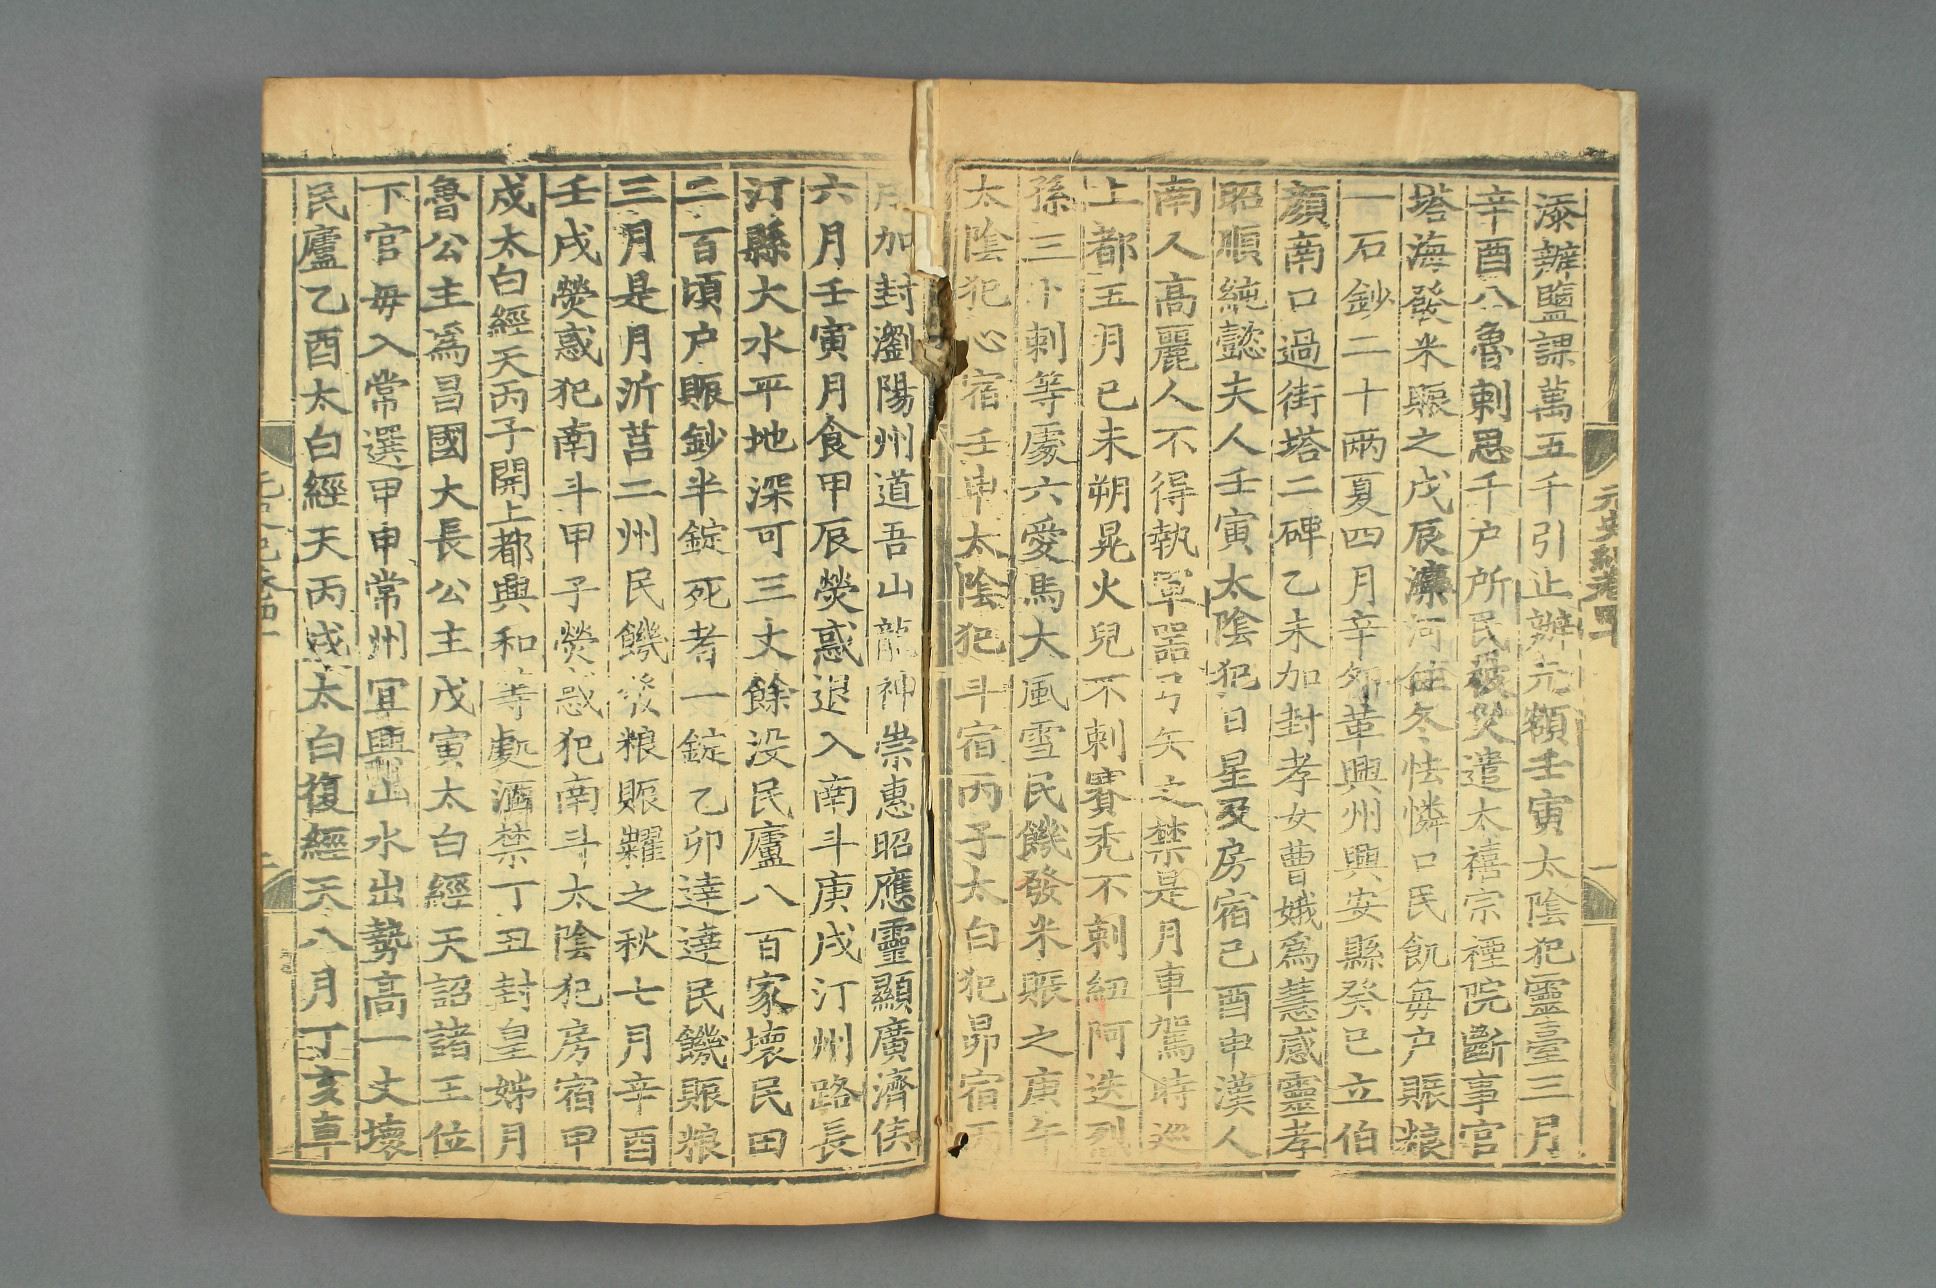 添辦鹽課萬五千引止辦元額壬寅太陰犯靈臺三月
辛酉八魯剌思千戶所民被災遣太禧宗禋院斷事官
塔海發米賑之戊辰濼河住冬怯憐口民飢每戶賑粮
一石鈔二十兩夏四月辛卯革興州興安縣癸巳立伯
顏南口過街塔二碑乙未加封孝女曹娥爲慧感靈孝
昭順純懿夫人壬寅太陰犯日星及房宿己酉申漢人
南人高麗人不得執軍噐弓矢之禁是月車駕時巡
上都五月己未朔晃火兒不剌賽禿不剌紐阿迭烈
孫三卜剌等處六愛馬大風雪民饑發米賑之庚午
太陰犯心宿壬申太陰犯斗宿丙子太白犯昴宿丙
元史紀卷四十
一
月加封瀏陽州道吾山龍神崇惠昭應靈顯廣濟侯
六月壬寅月食甲辰熒惑退入南斗庚戌汀州路長
汀縣大水平地深可三丈餘没民廬八百家壞民田
二百頃户賑鈔半錠死者一錠乙卯達達民饑賑粮
三月是月沂莒二州民饑發粮賑糶之秋七月辛酉
壬戌熒惑犯南斗甲子熒惑犯南斗太陰犯房宿甲
戌太白經天丙子開上都興和等處酒禁丁丑封皇姊月
魯公主爲昌國大長公主戊寅太白經天詔諸王位
下官毋入常選甲申常州冝興山水出勢高一丈壞
民廬乙酉太白經天丙戌太白復經天八月丁亥車